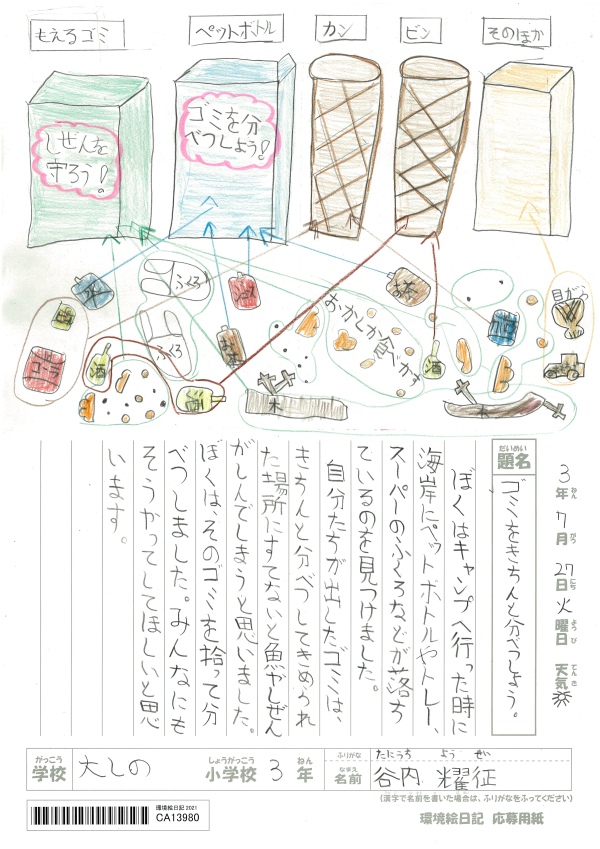 もえるゴミ
ペットボトル
カン
ビン
そのほか
しぜんを
守ろう!
ゴミを分
べつしよう!
ふくろ
ふくろ
おかしの食べかす
貝がら
水
お茶
酒
酒
木
木
3年ねん 7月がつ 27日にち 火曜日ようび 天気てんき
だいめい
題名
ゴミをきちんと分べつしよう。
ぼくはキャンプへ行った時に
海岸にペットボトルやトレー、
スーパーのふくろなどが落ち
ているのを見つけました。
自分たちが出したゴミは、
きちんと分べつしてきめられ
た場所にすてないと魚やしぜん
がしんでしまうと思いました。
ぼくは、そのゴミを拾って分
べつしました。みんなにも
そうやってしてほしいと思
います。
がっこう
学校
大しの
しょうがっこう
小学校
3
ねん
年
ふりがな
たにうち よう せい
なまえ
名前
谷内 耀征
(漢字で名前を書いた場合は、ふりがなをふってください)
環境絵日記2021
CA13980
環境絵日記 応募用紙